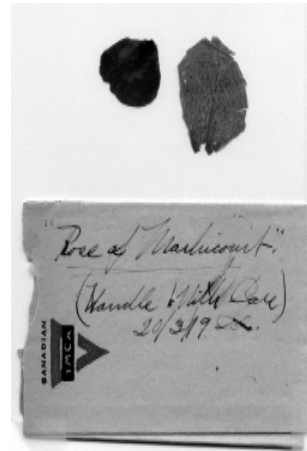 "Rose of Martincourt".
(Handle With Care)
20/3/19
CANADIAN
YMCA